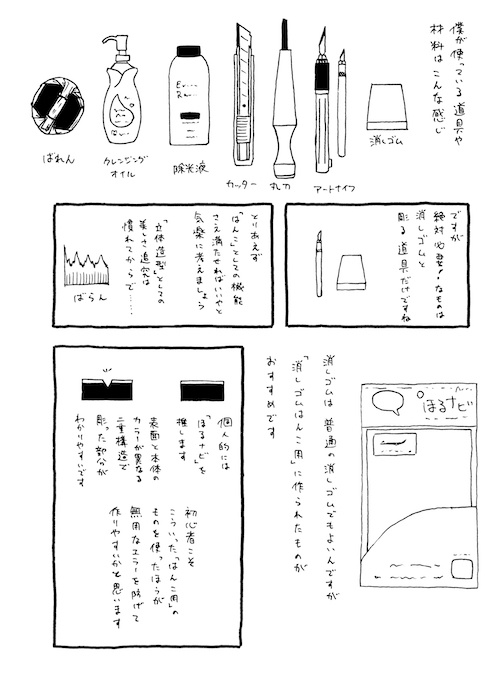 僕が使っている道具や
材料はこんな感じ
消しゴム
アートナイフ
丸刀
カッター
除光液
クレンジング
オイル
ばれん
ですが
絶対必要!なものは
消しゴムと
彫る道具だけですね
とりあえず
「はんことしての機能
さえ満たせればいいや」と
気楽に考えましょう
「立体造型」としての
美しさ追究は
慣れてからで……
ばらん
ほるナビ
消しゴムは普通の消しゴムでもよいんですが
「消しゴムはんこ用」に作られたものが
おすすめです
個人的には
「ほるナビ」を
推します
表面と本体の
カラーが異なる
二重構造で
彫った部分が
わかりやすいです
初心者こそ
こういった「はんこ用」の
ものを使ったほうが
無用なエラーを防げて
作りやすいかと思います